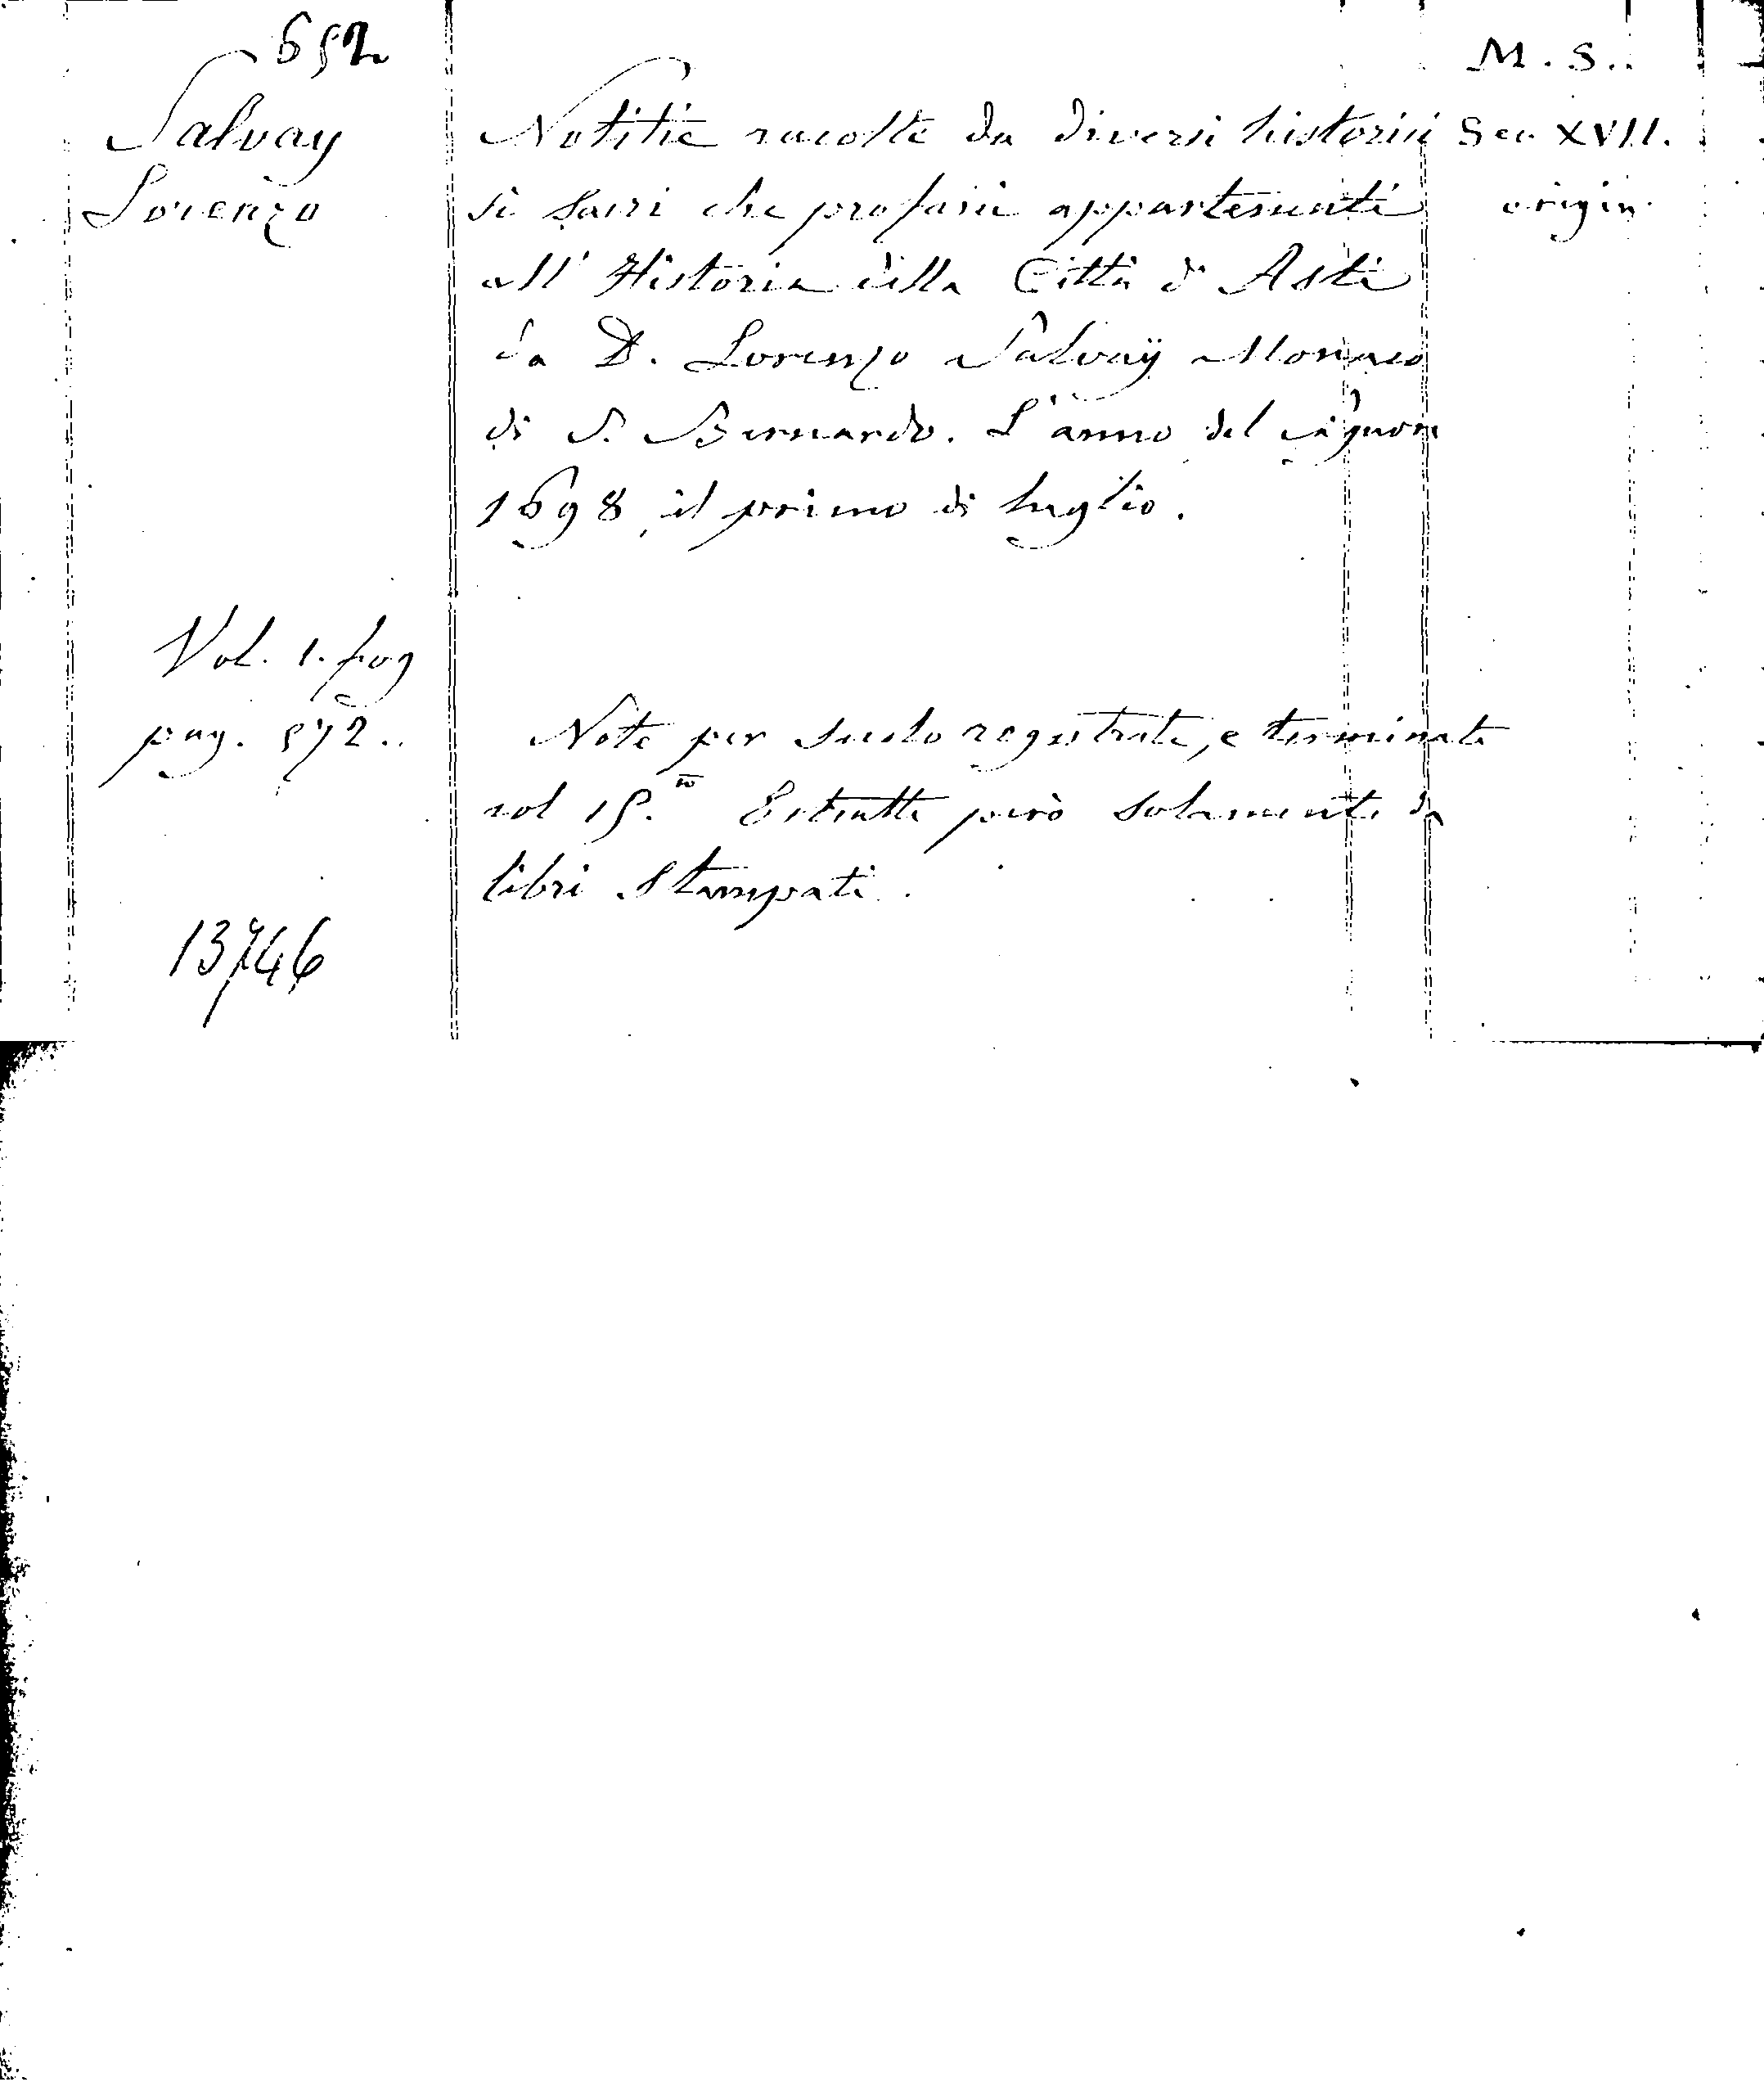 652
M. S.
Salvay
Notitie racolte da diversi historici
Sec. XVII.
Lorenzo
si sacri che profani appartenenti
origin.
all' Historia della Città d' Asti
da D. Lorenzo Salvaÿ Monaco
di S. Bernardo. L'anno del Signore
1698, il primo di luglio.
Vol. 1. fog
pag. 572..
Note per secolo registrate, e terminate
nol 15.mo Estratte però solamente da
libri stampati.
13746